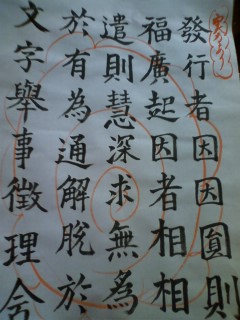 發行者因因圓則
福廣起因者相相
遣則慧深求無為
於有為通解脫於
文字舉事徵理含